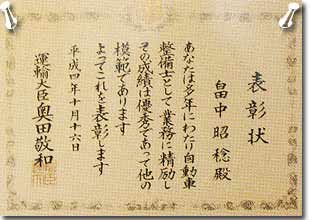 表彰状
畠中昭稔殿
あなたは多年にわたり自動車
整備士として業務に精励し
その成績は優秀であって他の
模範であります
よってこれを表彰します
平成四年十月十六日
運輸大臣奥田敬和